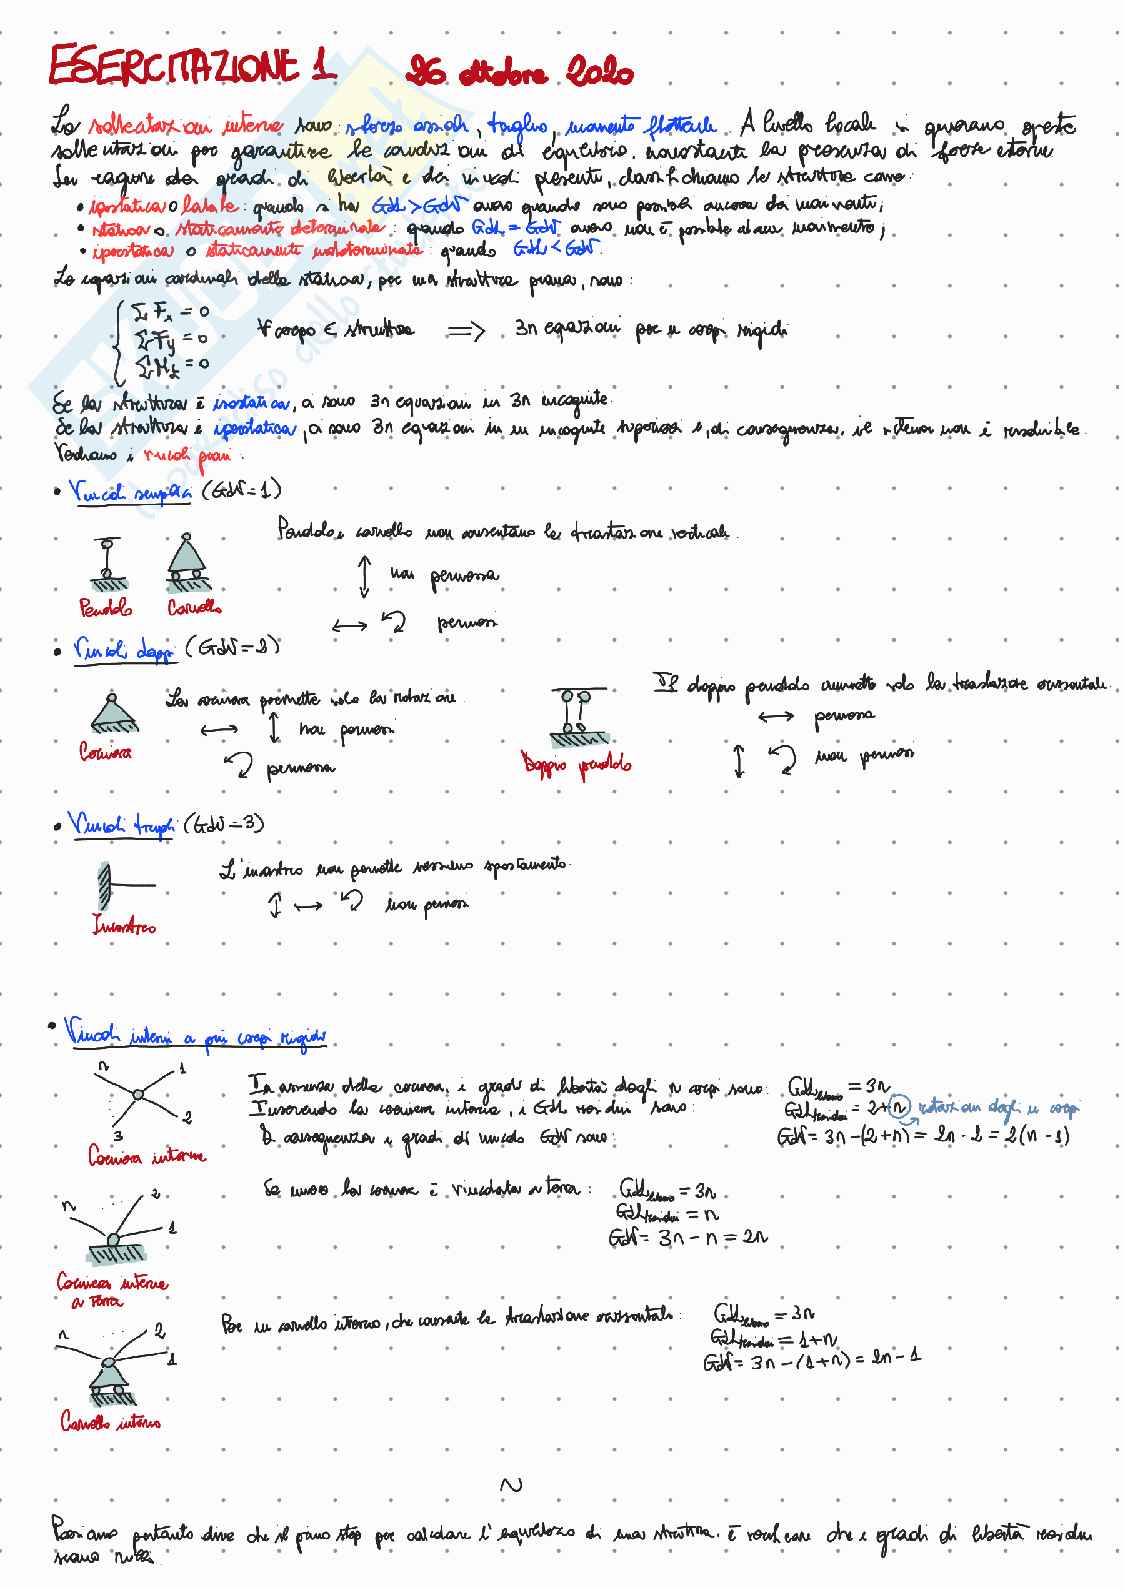 ESERCITAZIONE 1 26 ottobre 2020
Le sollecitazioni interne sono sforzo assiale, taglio, momento flettente. A livello locale si generano queste
sollecitazioni per garantire le condizioni di equilibrio, nonostante la presenza di forze esterne
In ragione dei gradi di libertà e dei vincoli presenti, classifichiamo le strutture come:
• ipostatica o labile: quando si ha GdL > GdV ovvero quando sono possibili ancora dei movimenti;
• isostatica o staticamente determinata: quando GdL = GdV ovvero non è possibile alcun movimento;
• iperstatica o staticamente indeterminata: quando GdL < GdV.
Le equazioni cardinali della statica, per una struttura piana, sono:
ΣFx = 0
ΣFy = 0 ∀ corpo ∈ struttura ⟹ 3n equazioni per n corpi rigidi
ΣMz = 0
Se la struttura è isostatica, ci sono 3n equazioni in 3n incognite.
Se la struttura è iperstatica, ci sono 3n equazioni in incognite superiori e, di conseguenza, il sistema non è risolvibile.
Vediamo i vincoli piani:
• Vincoli semplici (GdV=1)
Pendolo e carrello non consentono la traslazione verticale.
↕ non permessa
Pendolo Carrello
↔ ↶ permessi
• Vincoli doppi (GdV=2)
La cerniera permette solo la rotazione
Il doppio pendolo ammette solo la traslazione orizzontale.
↔ ↕ non permessi
↔ permessa
Cerniera
↶ permessa
Doppio pendolo
↕ ↶ non permessi
• Vincoli tripli (GdV=3)
L'incastro non permette nessuno spostamento.
↕ ↔ ↶ non permessi
Incastro
• Vincoli interni a più corpi rigidi
n 1
2
3
In assenza della cerniera, i gradi di libertà degli n corpi sono: GdL = 3n
Inserendo la cerniera interna, i GdL residui sono: GdL residui = 2+n rotazioni degli n corpi
Di conseguenza i gradi di vincolo GdV sono: GdV = 3n-(2+n) = 2n-2 = 2(n-1)
Cerniera interna
n 2
1
Se invece la cerniera è vincolata a terra: GdL = 3n
GdL residui = n
GdV = 3n - n = 2n
Cerniera interna
a terra
n 2
1
Per un carrello interno, che consente la traslazione orizzontale: GdL = 3n
GdL residui = 1+n
GdV = 3n-(1+n) = 2n-1
Carrello interno
~
Possiamo pertanto dire che il primo step per calcolare l'equilibrio di una struttura è verificare che i gradi di libertà residui
siano nulli.